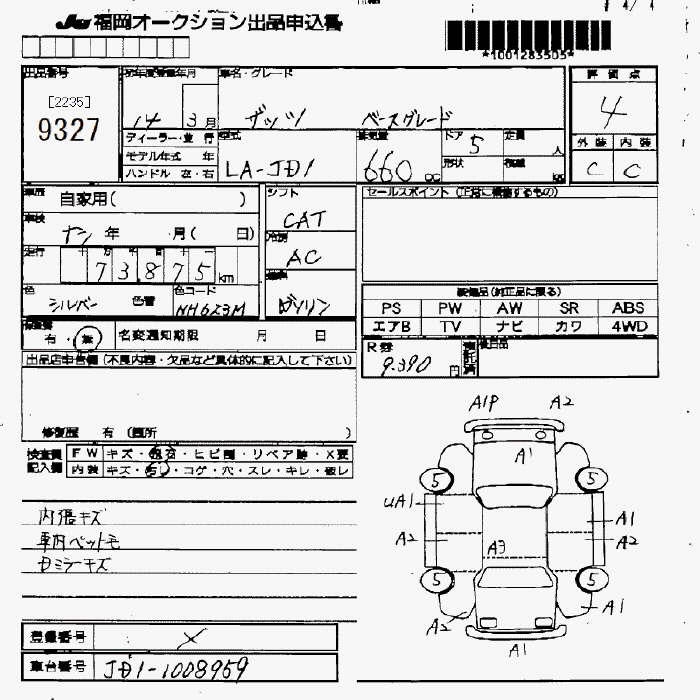 JU 福岡オークション出品申込書
*1001283505*
出品番号
[2235]
9327
初年度登録年月
14 3月
車名・グレード
ザッツ ベースグレード
評価点
4
外装 内装
C C
ディーラー・並行
モデル年式 年
ハンドル 左・右
型式
LA-JD1
排気量
660 cc
ドア 5
定員 人
形状
積載 kg
車歴 自家用( )
車検 ナシ 年 月( 日)
走行 十 万 千 百 十 一
73,875 km
色 シルバー 色替
色コード NH623M
シフト
CAT
冷房
AC
燃料
ガソリン
セールスポイント (正常に機能するもの)
装備品 (純正品に限る)
PS PW AW SR ABS
エアB TV ナビ カワ 4WD
R券
9,390 円
後日品
有・無 名変通知期限 月 日
出品店申告欄 (不良内容・欠品など具体的に記入して下さい)
修復歴 有 (箇所 )
検査員記入欄
FW キズ・飛石・ヒビ割・リペア跡・X要
内装 キズ・汚れ・コゲ・穴・スレ・キレ・破レ
内張キズ
車内ペット毛
Dミラーキズ
A1P A2
A1
5 5
UA1
A1
A2
A2
A3
5 5
A2
A1
A1
登録番号 ×
車台番号 JD1-1008959